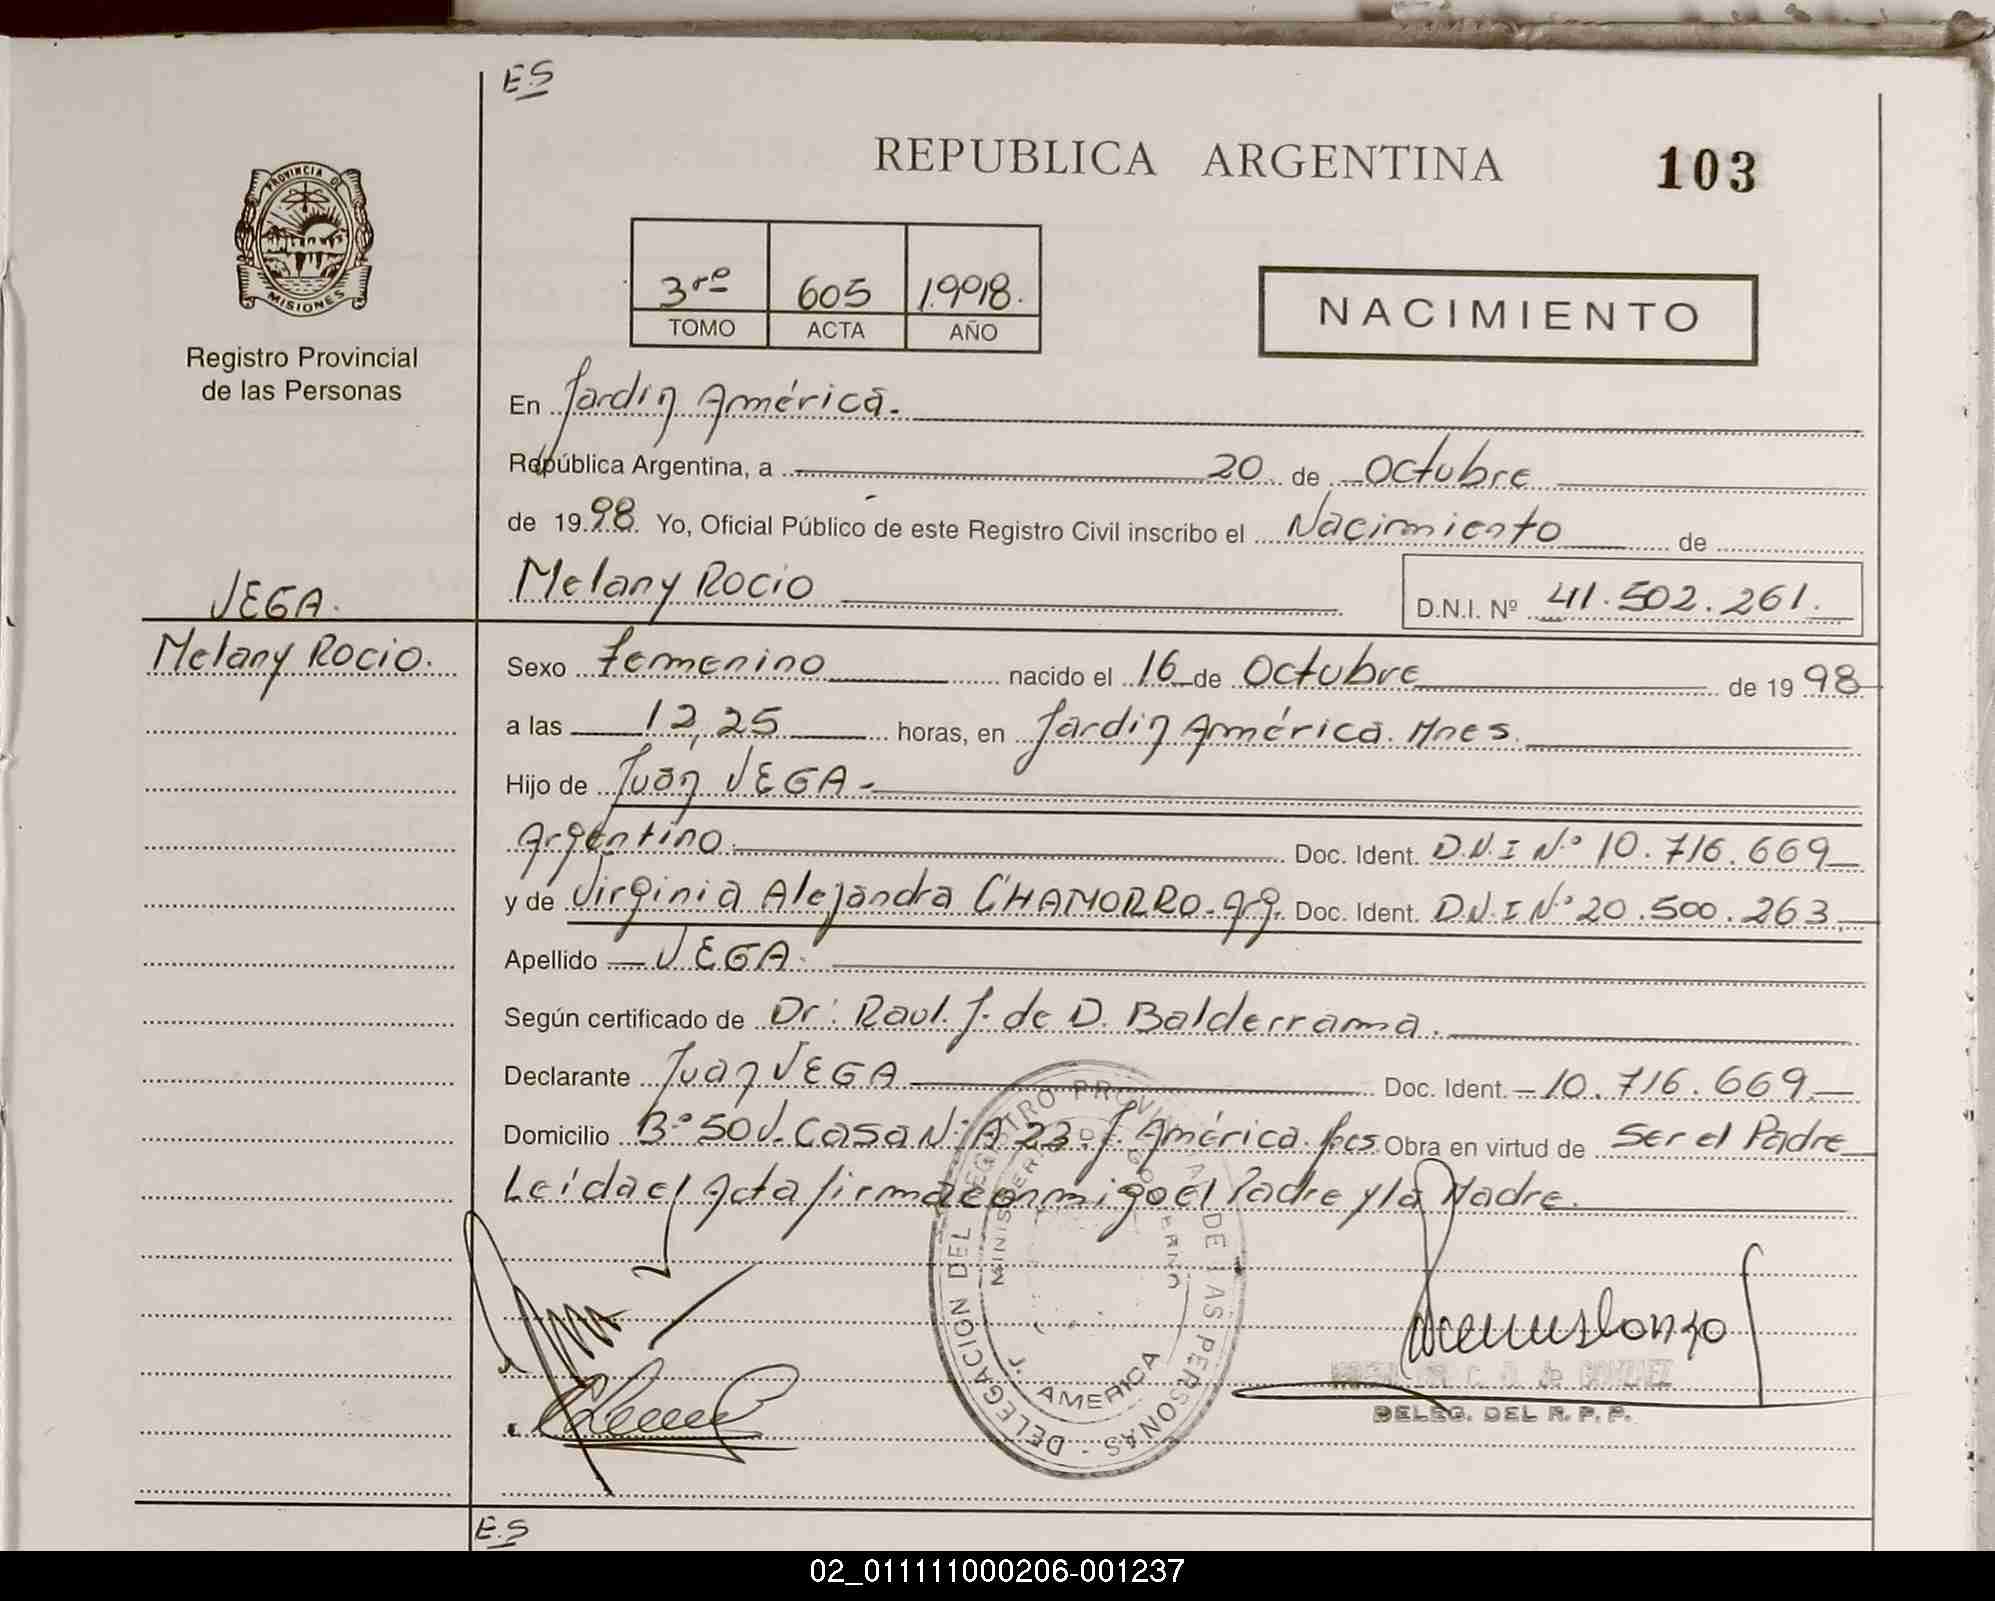 E.S
REPUBLICA ARGENTINA 103
PROVINCIA DE
MISIONES
Registro Provincial
de las Personas
3ro 605 1.998.
TOMO ACTA AÑO
NACIMIENTO
En Jardin América.
República Argentina, a 20 de Octubre
de 1998. Yo, Oficial Público de este Registro Civil inscribo el Nacimiento de
Melany Rocio D.N.I. Nº 41.502.261.
VEGA.
Melany Rocio.
Sexo Femenino nacido el 16 de Octubre de 1998
a las 12,25 horas, en Jardin América. Mnes.
Hijo de Juan VEGA.
Argentino. Doc. Ident. D.N.I Nº 10.716.669
y de Virginia Alejandra CHAMORRO. Arg. Doc. Ident. D.N.I Nº 20.500.263
Apellido VEGA.
Según certificado de Dr: Raul. J. de D. Balderrama.
Declarante Juan VEGA Doc. Ident. 10.716.669.
Domicilio Bº 50V. Casa Nº A 23. J. América. Obra en virtud de Ser el Padre
Leída el Acta firma conmigo el Padre y la Madre.
DELEGACION DEL REGISTRO PROVINCIAL DE LAS PERSONAS
MINISTERIO DE GOBIERNO
J. AMERICA
C. D. de GONZALEZ
DELEG. DEL R. P. P.
E.S
02_011111000206-001237